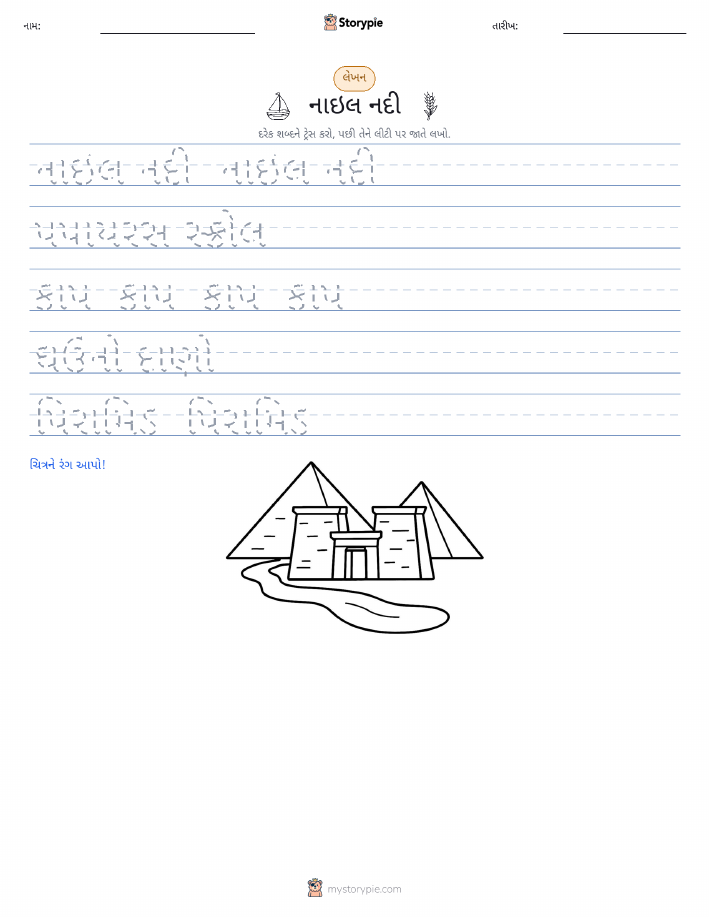 નામ:
Storypie
તારીખ:
લેખન
નાઇલ નદી
દરેક શબ્દને ટ્રેસ કરો, પછી તેને લીટી પર જાતે લખો.
નાઇલ નદી નાઇલ નદી
પપાયરસ સ્ક્રોલ
કાપ કાપ કાપ કાપ
ઘઉંનો દાણો
પિરામિડ પિરામિડ
ચિત્રને રંગ આપો!
mystorypie.com